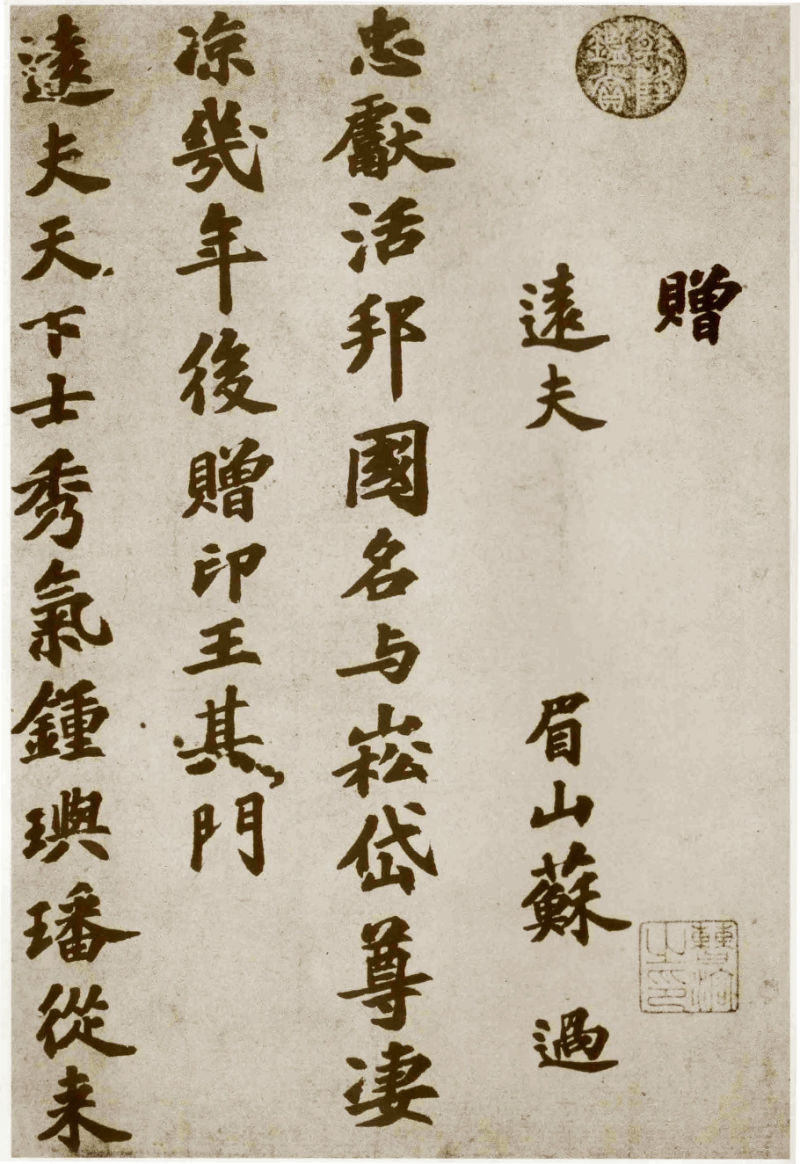 乾隆鑑賞
贈
遠夫 眉山蘇過
忠獻活邦國名与崧岱尊凄
凉幾年後贈印王其門
遠夫天下士秀氣鍾璵璠從来